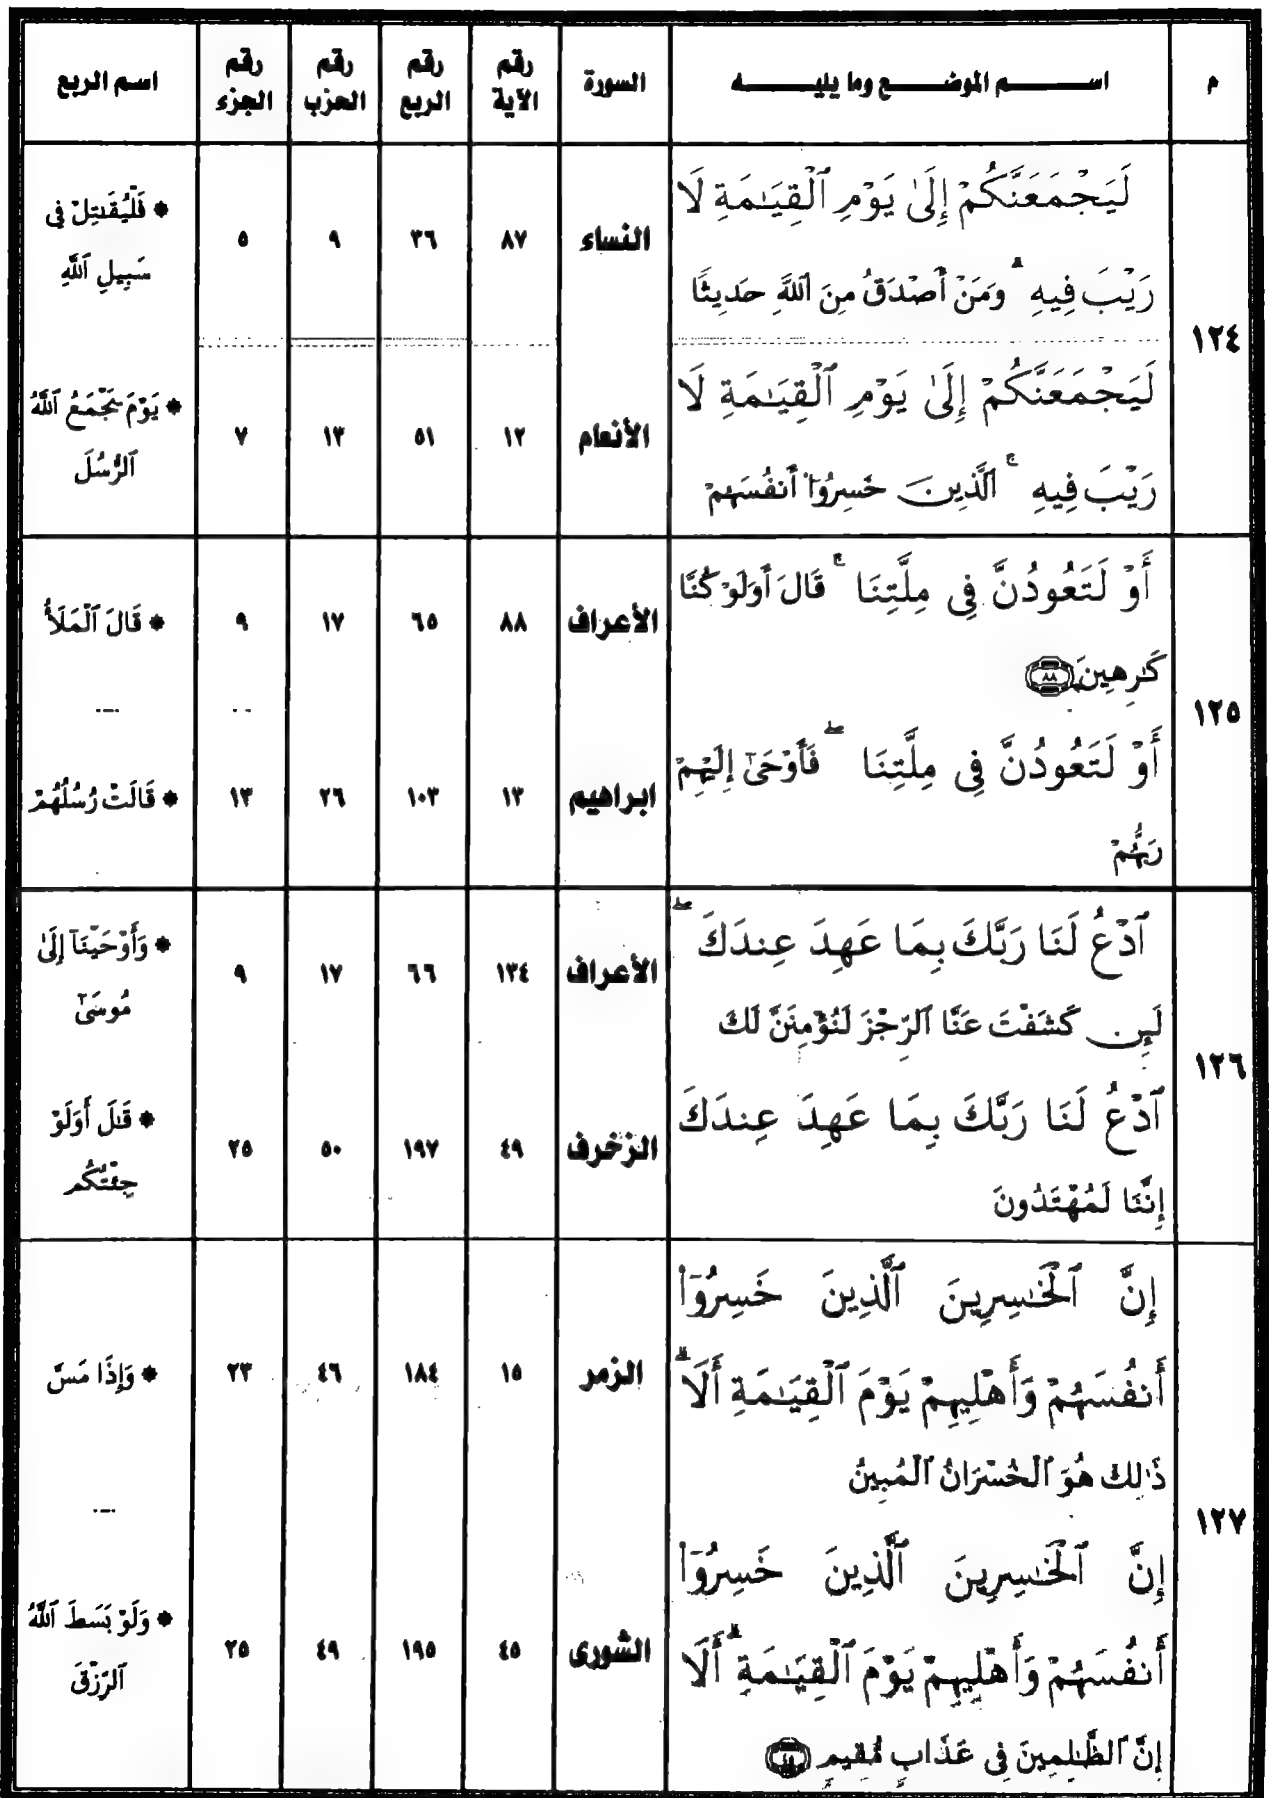 م اســم الموضــع وما يليــه السورة رقم الآية رقم الربع رقم الحزب رقم الجزء اسم الربع
١٢٤
لَيَجْمَعَنَّكُمْ إِلَىٰ يَوْمِ ٱلْقِيَـٰمَةِ لَا
رَيْبَ فِيهِ ۗ وَمَنْ أَصْدَقُ مِنَ ٱللَّهِ حَدِيثًا
النساء ٨٧ ٣٦ ٩ ٥
* فَلْيُقَـٰتِلْ فِى
سَبِيلِ ٱللَّهِ
لَيَجْمَعَنَّكُمْ إِلَىٰ يَوْمِ ٱلْقِيَـٰمَةِ لَا
رَيْبَ فِيهِ ۚ ٱلَّذِينَ خَسِرُوٓا۟ أَنفُسَهُمْ
الأنعام ١٢ ٥١ ١٣ ٧
* يَوْمَ يَجْمَعُ ٱللَّهُ
ٱلرُّسُلَ
١٢٥
أَوْ لَتَعُودُنَّ فِى مِلَّتِنَا ۚ قَالَ أَوَلَوْ كُنَّا
كَـٰرِهِينَ ٨٨
الأعراف ٨٨ ٦٥ ١٧ ٩
* قَالَ ٱلْمَلَأُ
أَوْ لَتَعُودُنَّ فِى مِلَّتِنَا ۖ فَأَوْحَىٰٓ إِلَيْهِمْ
رَبُّهُمْ
ابراهيم ١٣ ١٠٣ ٢٦ ١٣
* قَالَتْ رُسُلُهُمْ
١٢٦
ٱدْعُ لَنَا رَبَّكَ بِمَا عَهِدَ عِندَكَ ۖ
لَئِن كَشَفْتَ عَنَّا ٱلرِّجْزَ لَنُؤْمِنَنَّ لَكَ
الأعراف ١٣٤ ٦٦ ١٧ ٩
* وَأَوْحَيْنَآ إِلَىٰ
مُوسَىٰٓ
ٱدْعُ لَنَا رَبَّكَ بِمَا عَهِدَ عِندَكَ
إِنَّنَا لَمُهْتَدُونَ
الزخرف ٤٩ ١٩٧ ٥٠ ٢٥
* قَـٰلَ أَوَلَوْ
جِئْتُكُم
١٢٧
إِنَّ ٱلْخَـٰسِرِينَ ٱلَّذِينَ خَسِرُوٓا۟
أَنفُسَهُمْ وَأَهْلِيهِمْ يَوْمَ ٱلْقِيَـٰمَةِ ۗ أَلَا
ذَٰلِكَ هُوَ ٱلْخُسْرَانُ ٱلْمُبِينُ
الزمر ١٥ ١٨٤ ٤٦ ٢٣
* وَإِذَا مَسَّ
إِنَّ ٱلْخَـٰسِرِينَ ٱلَّذِينَ خَسِرُوٓا۟
أَنفُسَهُمْ وَأَهْلِيهِمْ يَوْمَ ٱلْقِيَـٰمَةِ ۗ أَلَآ
إِنَّ ٱلظَّـٰلِمِينَ فِى عَذَابٍ مُّقِيمٍ
الشورى ٤٥ ١٩٥ ٤٩ ٢٥
* وَلَوْ بَسَطَ ٱللَّهُ
ٱلرِّزْقَ